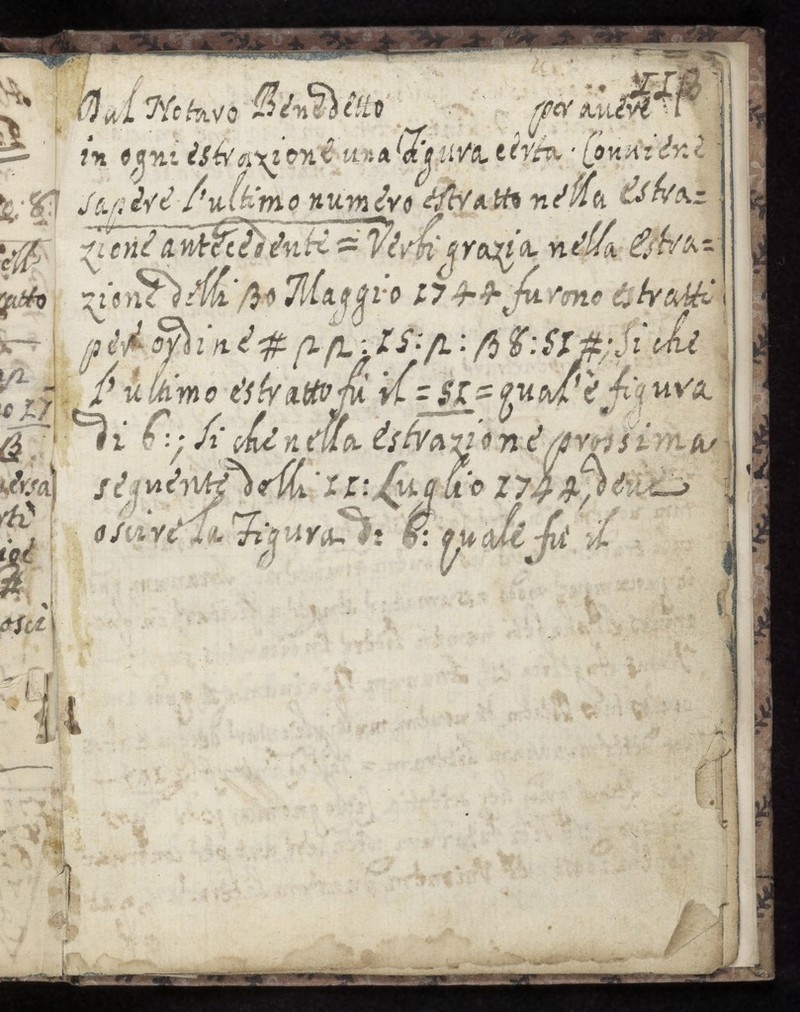 8:
ell
ratto
17
uersa
rti
osci
Dal Notaro Benedetto per auere
in ogni estrazione una Figura certa. Conuiene
sapere l'ultimo numero estratto nella estra=
zione antecedente = Verbi grazia nella estra=
zione delli 30 Maggio 1744 furono estratti
per ordine # 22:15:2:38:51 #; Si che
l'ultimo estratto fù il = 51 = qual'è figura
di 6:; Si che nella estrazione prossima
seguente delli 11: Luglio 1744, deue
oscire la Figura d: 6: quale fù il